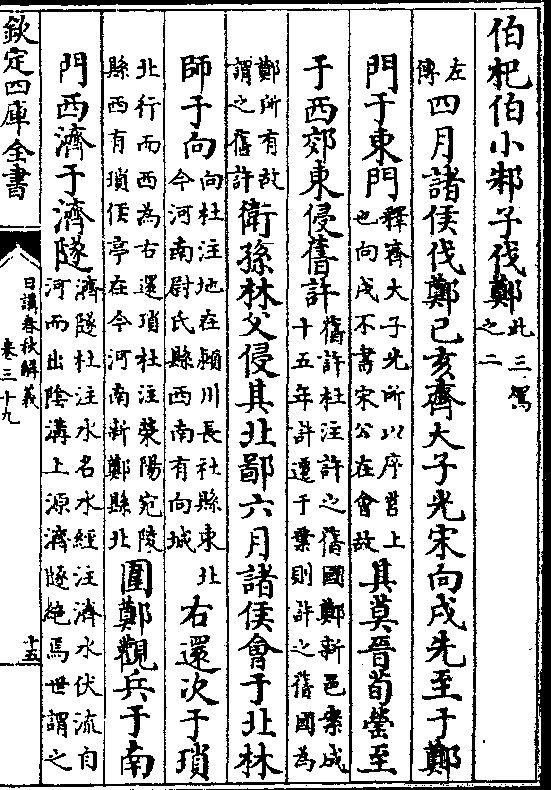 伯杞伯小邾子伐鄭此三駕之二
左傳四月諸侯伐鄭己亥齊大子光宋向戌先至于鄭
門于東門釋齊大子光所以序莒上也向戌不書宋公在會故其莫晉荀罃至
于西郊東侵舊許舊許杜注許之舊國鄭新邑案成十五年許遷于葉則許之舊國為
鄭所有故謂之舊許衛孫林父侵其北鄙六月諸侯會于北林
師于向向杜注地在潁川長社縣東北今河南尉氏縣西南有向城右還次于瑣
北行而西為右還瑣杜注滎陽宛陵縣西有瑣侯亭在今河南新鄭縣北圍鄭觀兵于南
門西濟于濟隧濟隧杜注水名水經注濟水伏流自河而出陰溝上源濟隧絕焉世謂之
欽定四庫全書
日講春秋解義
卷三十九
十五